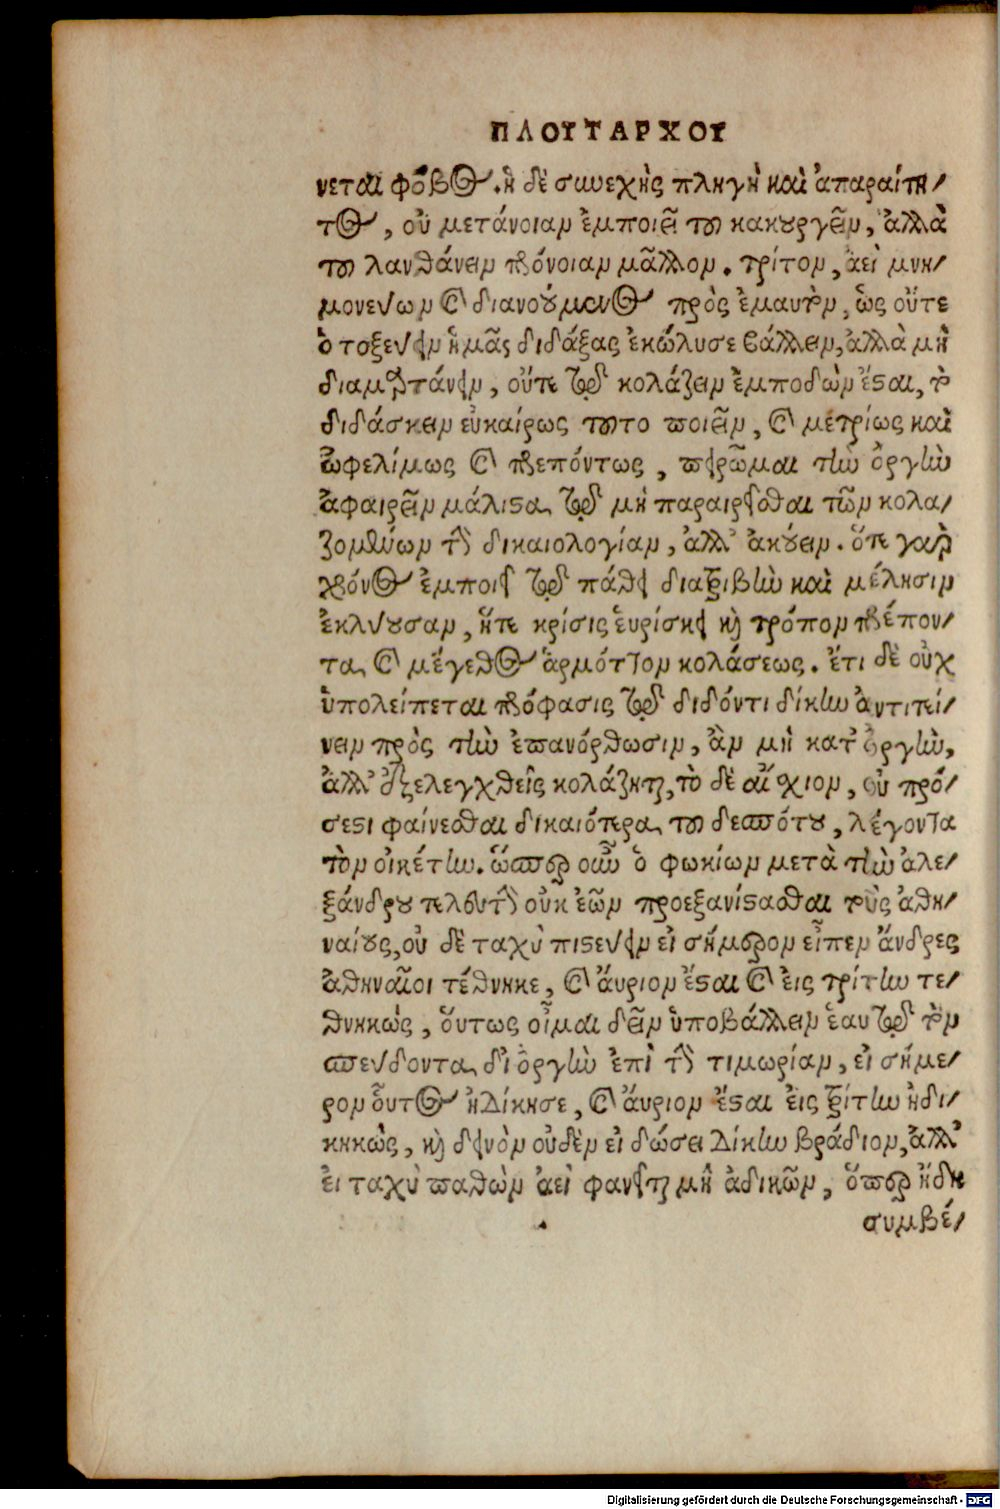 ΠΛΟΥΤΑΡΧΟΥ
νεται φόβος. ἡ δὲ συνεχὴς πληγὴ καὶ ἀπαραίτη/
τος, οὐ μετάνοιαν ἐμποιεῖ τοῦ κακουργεῖν, ἀλλὰ
τοῦ λανθάνειν πρόνοιαν μᾶλλον. τρίτον, ἀεὶ μνη/
μονεύων καὶ διανούμενος πρὸς ἐμαυτὸν, ὡς οὔτε
ὁ τοξεύειν ἡμᾶς διδάξας ἐκώλυσε βάλλειν, ἀλλὰ μὴ
διαμαρτάνειν, οὔτε τῷ κολάζειν ἐμποδὼν ἔσται, τὸ
διδάσκειν εὐκαίρως τοῦτο ποιεῖν, καὶ μετρίως καὶ
ὠφελίμως καὶ πρεπόντως, πειρῶμαι τὴν ὀργὴν
ἀφαιρεῖν μάλιστα, τῷ μὴ παραιρεῖσθαι τῶν κολα/
ζομένων τὴν δικαιολογίαν, ἀλλ' ἀκούειν. ὅτε γὰρ
χρόνος ἐμποιεῖ τῷ πάθει διατριβὴν καὶ μέλησιν
ἐκλύουσαν, ἥτε κρίσις εὑρίσκει καὶ τρόπον πρέπον/
τα, καὶ μέγεθος ἁρμόττον κολάσεως. ἔτι δὲ οὐχ
ὑπολείπεται πρόφασις τῷ διδόντι δίκην ἀντιτεί/
νειν πρὸς τὴν ἐπανόρθωσιν, ἂν μὴ κατ' ὀργὴν,
ἀλλ' ἐξελεγχθεὶς κολάζηται, τὸ δὲ αἴσχιον, οὐ πρό/
σεστι φαίνεσθαι δικαιότερα, τοῦ δεσπότου, λέγοντα
τὸν οἰκέτην. ὥσπερ οὖν ὁ φωκίων μετὰ τὴν ἀλε/
ξάνδρου τελευτὴν οὐκ ἐῶν προεξανίστασθαι τοὺς ἀθη/
ναίους, οὐ δὲ ταχὺ πιστεύειν εἰ σήμερον εἶπεν ἄνδρες
ἀθηναῖοι τέθνηκε, καὶ ἄυριον ἔσται καὶ εἰς τρίτην τε/
θνηκὼς, οὕτως οἶμαι δεῖν ὑποβάλλειν ἑαυτῷ τὸν
σπεύδοντα, δι' ὀργὴν ἐπὶ τὴν τιμωρίαν, εἰ σήμε/
ρον οὗτος ἠδίκησε, καὶ ἄυριον ἔσται εἰς τρίτην ἠδι/
κηκὼς, καὶ δεινὸν οὐδὲν εἰ δώσει δίκην βράδιον, ἀλλ'
εἰ ταχὺ παθὼν ἀεὶ φανεῖται μὴ ἀδικῶν, ὅπερ ἤδη
συμβέ/
Digitalisierung gefördert durch die Deutsche Forschungsgemeinschaft - DFG